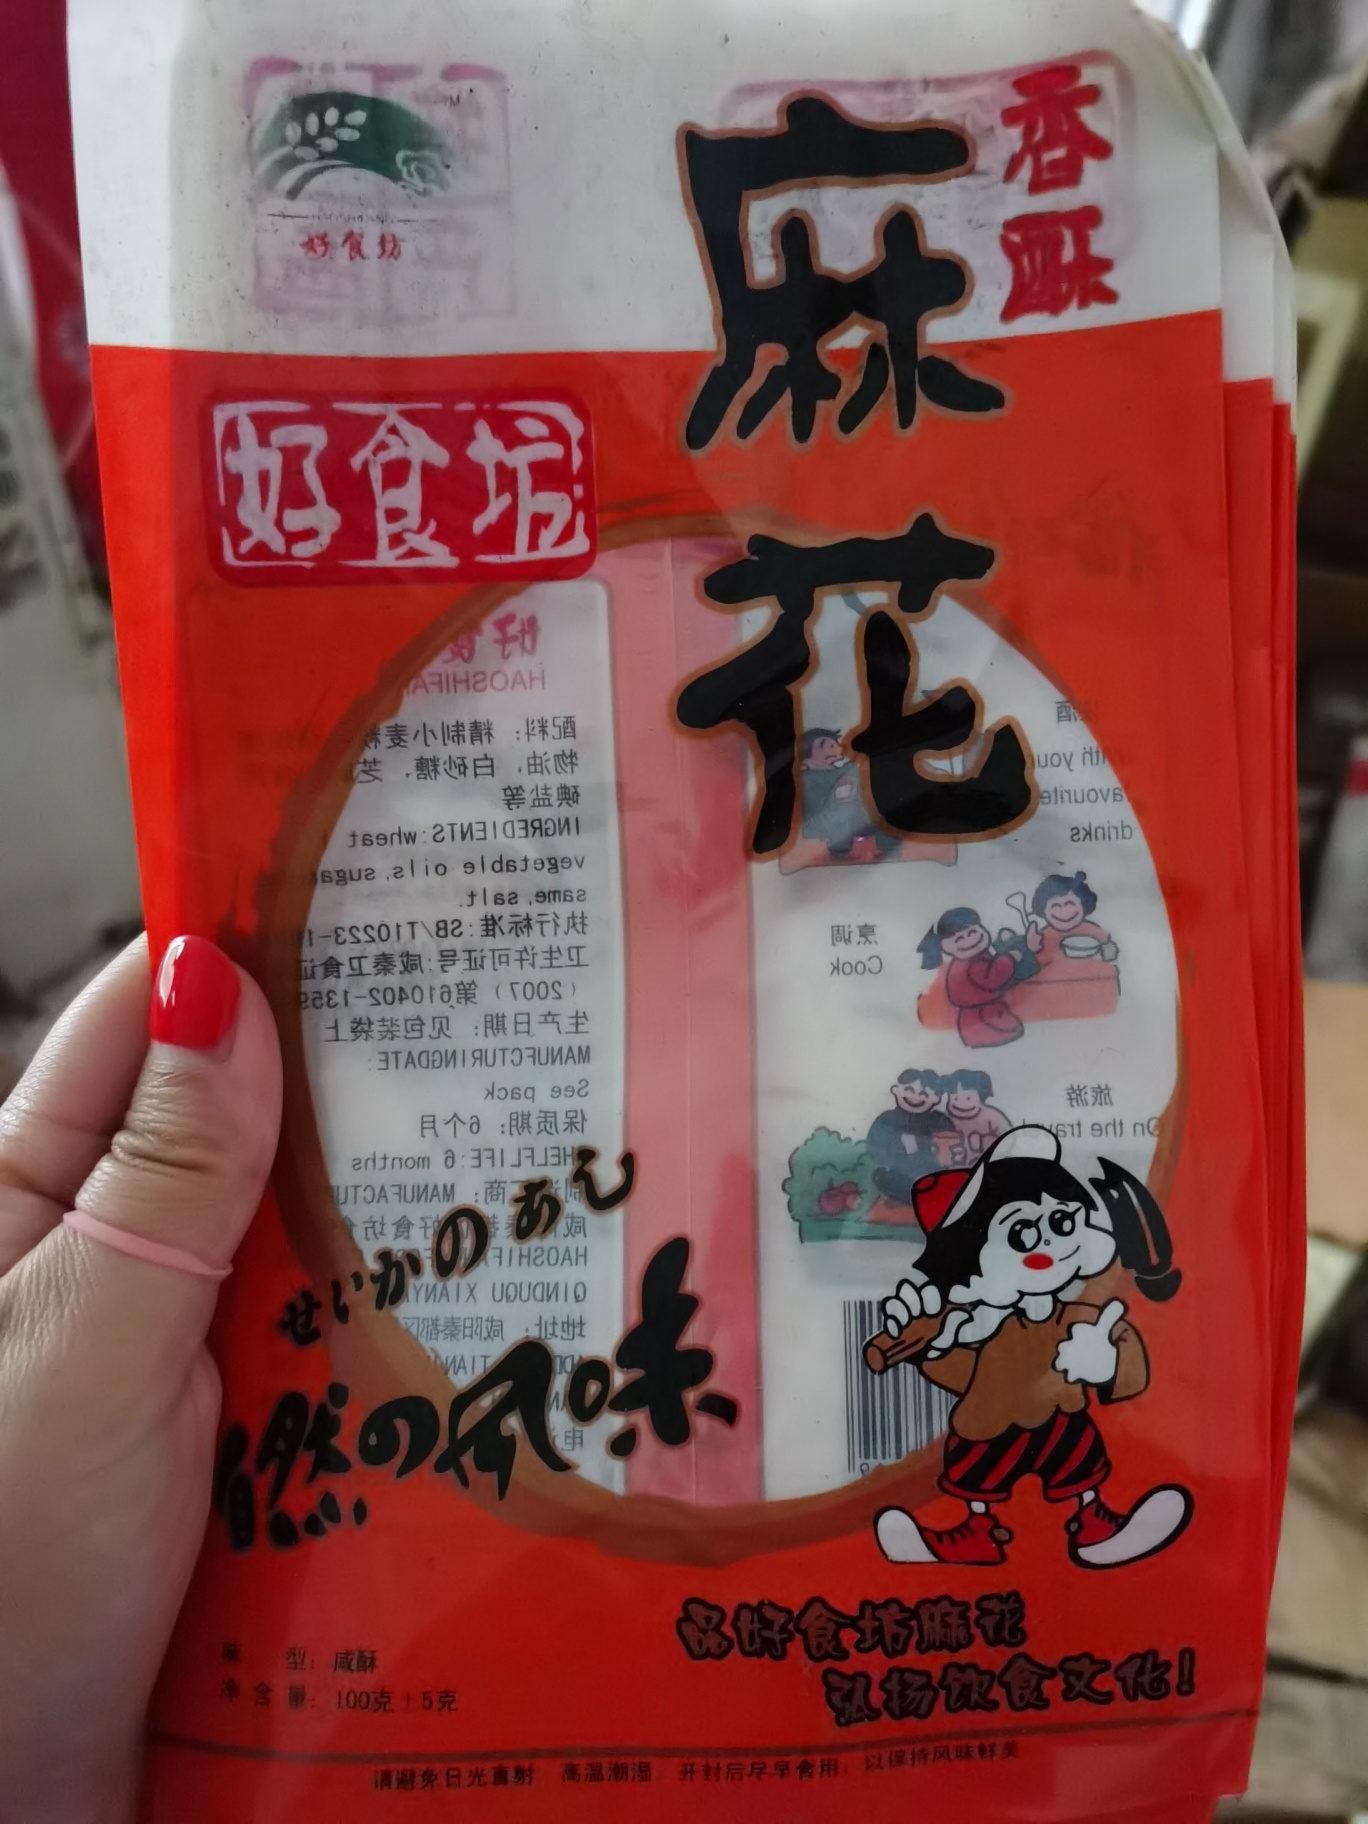 香酥
麻花
好食坊
好食坊
好食
HAOSHIFA
配料：精制小麦粉
物油，白砂糖，芝
碘盐等
INGREDIENTS:wheat
vegetable oils,sugar
same,salt.
执行标准:SB/T10223-1
卫生许可证号:咸秦卫食证
（2007）第610402-1359
生产日期：见包装袋上
MANUFCTURINGDATE:
See pack
保质期：6个月
HELFLIFE:6 months
商：MANUFACTU
好食坊食
HAOSHIFA
QINDUQU XIANY
地址：咸阳秦都区
酒
with your
favourite
drinks
烹调
Cook
旅游
On the travel
せいかのあじ
自然の风味
品好食坊麻花
弘扬饮食文化！
味　型：咸酥
净含量：100克±5克
请避免日光直射　高温潮湿　开封后尽早食用，以保持风味鲜美